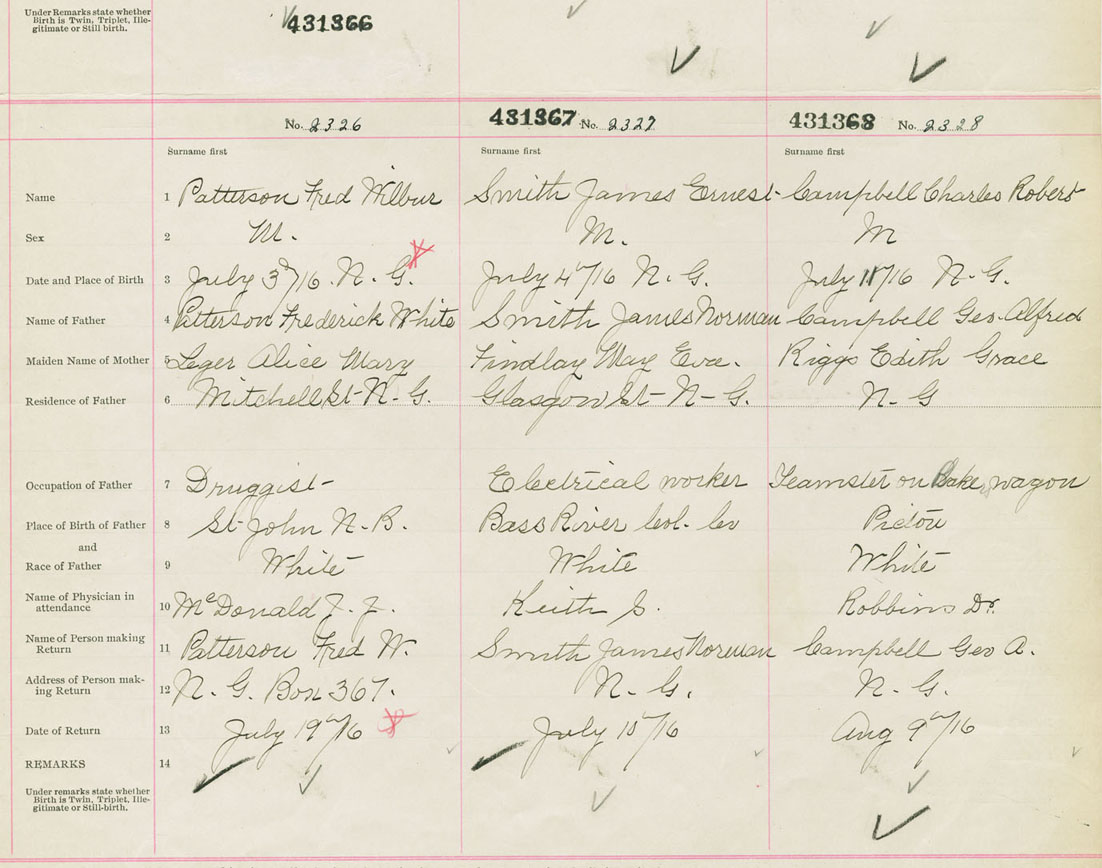 Under Remarks state whether
Birth is Twin, Triplet, Ille-
gitimate or Still birth.
431366
No. 2326
431367 No. 2327
431368 No. 2328
Surname first Surname first Surname first
Name 1 Patterson Fred Wilbur Smith James Ernest Campbell Charles Robert
Sex 2 M. M. M
Date and Place of Birth 3 July 3/16. N. G. July 4/16 N. G. July 11/16 N-G.
Name of Father 4 Patterson Frederick White Smith James Norman Campbell Geo. Alfred
Maiden Name of Mother 5 Leger Alice Mary Findlay May Eva. Riggs Edith Grace
Residence of Father 6 Mitchell St-N-G. Glasgow St-N-G. N-G
Occupation of Father 7 Druggist- Electrical worker Teamster on Bake wagon
Place of Birth of Father 8 St-John N.B. Bass River Col. Co Pictou
and
Race of Father 9 White White White
Name of Physician in
attendance 10 McDonald J. J. Keith S. Robbins Dr.
Name of Person making
Return 11 Patterson Fred W. Smith James Norman Campbell Geo A.
Address of Person mak-
ing Return 12 N. G. Box 367. N-G. N-G.
Date of Return 13 July 19th/16 July 10/16 Aug 9th/16
REMARKS 14
Under remarks state whether
Birth is Twin, Triplet, Ille-
gitimate or Still-birth.